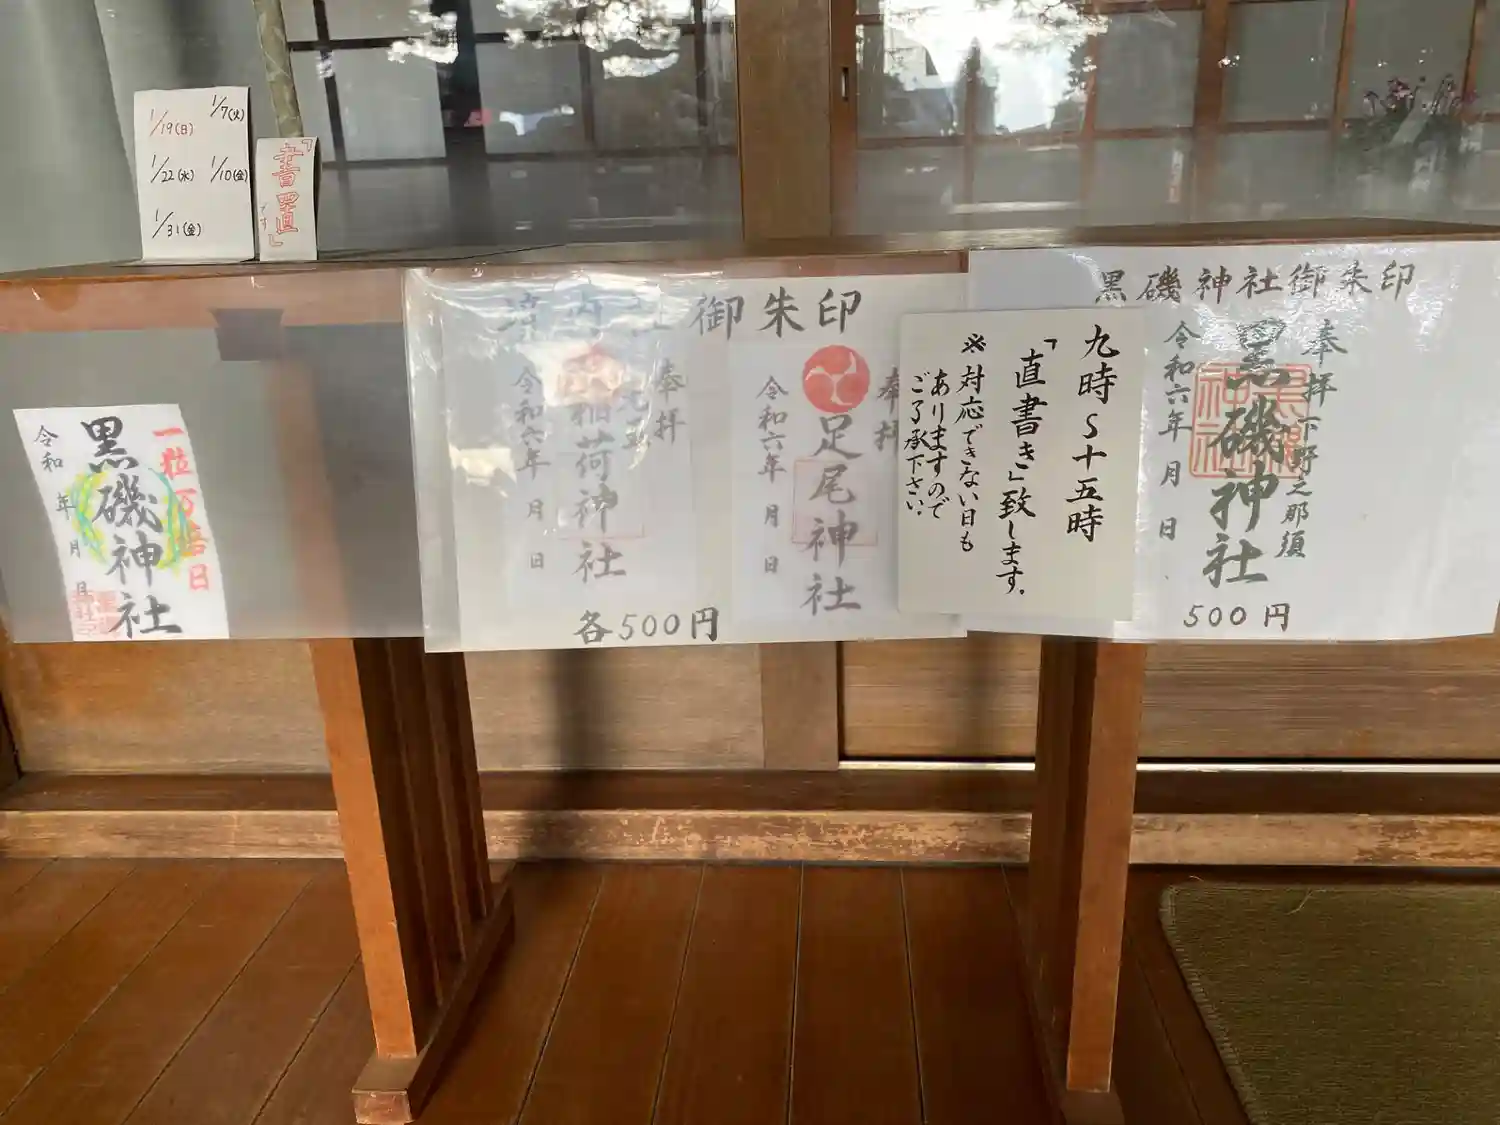 1/7(火)
1/19(日)
1/10(金)
1/22(水)
1/31(金)
「書置」
です
一粒万倍日
黒磯神社
令和 年 月 日
御朱印
奉拝
稲荷神社
令和六年 月 日
奉拝
足尾神社
令和六年 月 日
各500円
九時〜十五時
「直書き」致します.
※対応できない日も
ありますので
ご了承下さい.
黒磯神社御朱印
奉拝 下野之那須
黒磯神社
令和六年 月 日
500円